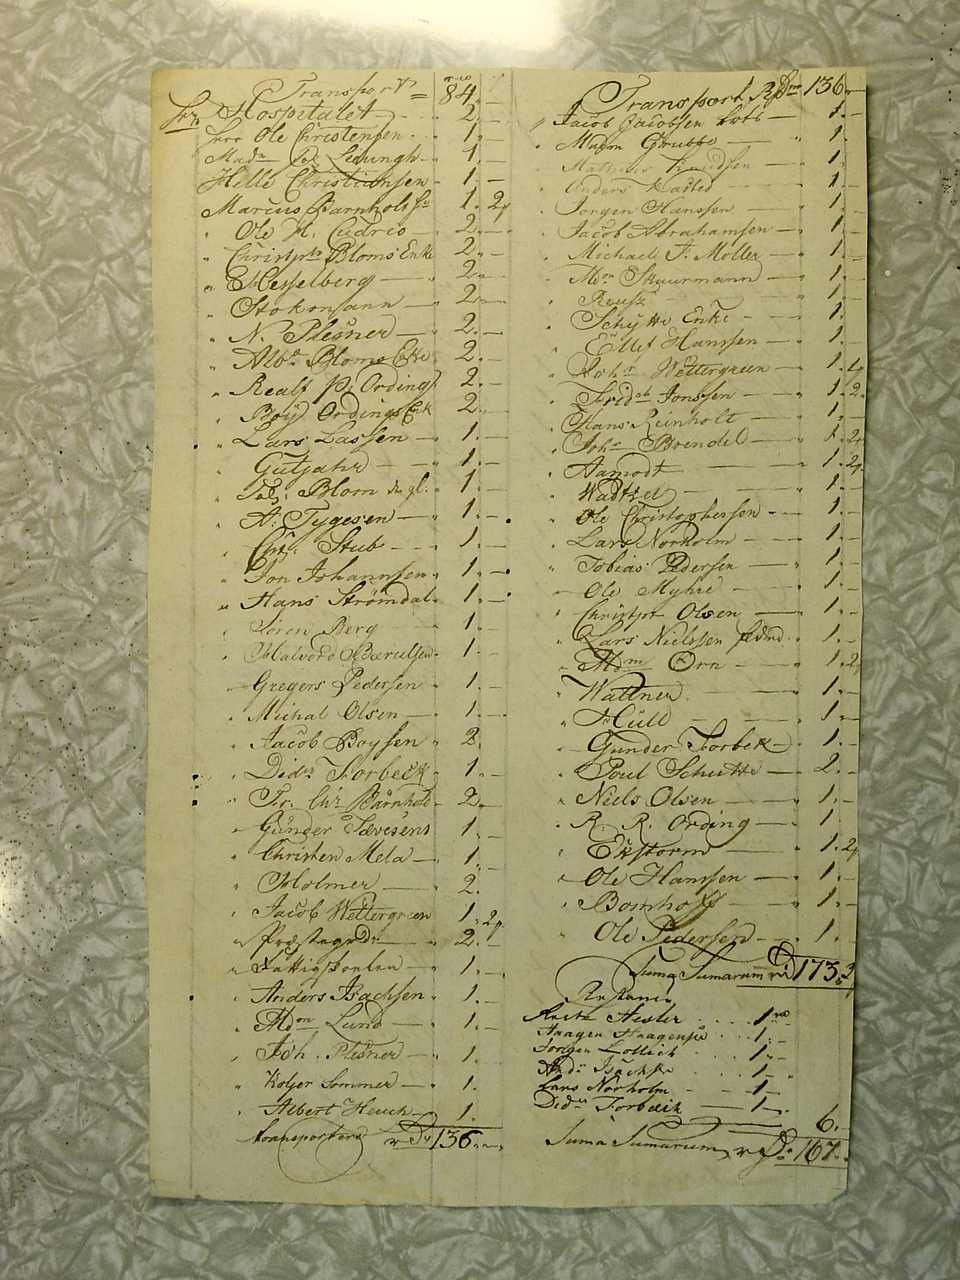 Transport = 84. -
Hospitalet - 2. -
Herr Ole Christensen - 1. -
Madm - 1. -
Helle Christiansen - 1. -
Marcus Barnholt - 1. 2
" Ole H. - 2. -
" Christph Bloms Enke 2. -
" Hesselberg - 2. -
" Stokmann - 2. -
" N. Plesner - 2. -
" Albt Bloms Enke 2. -
" Realf P: Ordings 2. -
" Boÿ Ordings Enk 2. -
" Lars Lassen - 1. -
" Gutjahr - 1. -
" Blom 1. -
" A: Tygesen - 1. -
" Chr: Stub - 1. -
" Jon Johannsen 1. -
" Hans Strømdal 1. -
" Søren Berg 1. -
" Halvord 1. -
" Gregers Pedersen 1. -
" Michal Olsen - 1. -
" Jacob Boysen 2.
" Didr Forbech 1. -
" Fr. Chr Barnholt 2. -
" Gunder 1. -
" Christen Mela - 1. -
" Holmer - 2.
" Jacob Wettergreen 1. 2
" Præstegrd: 2. -
" 1. -
" Anders Isachsen 1. -
" Mdm Lund - 1. -
" Joh. Plesner - 1.
" Holger Sommer - 1.
" Albert Heuch - 1.
transporteres 136. -
Transport 136. -
" Jacob Jacobsen 1. -
" Madm Grubbe - 1. -
" Mathias Knudsen - 1. -
" Anders 1. -
" Jørgen Hanssen - 1. -
" Jacob Abrahamsen - 1. -
" Michael F. Møller - 1. -
" Mdm Skuurmann - 1. -
" 1. -
" Schÿtte Enke - 1. -
" Eilef Hanssen - 1. -
" Johs Wettergreen - 1. 2
" Fridch Jonssen - 1. 2
" Hans Reinholt - 1. -
" Johs Brendel - 1. 2
" Aamodt - 1. 2
" 1. -
" Ole Christophersen - 1. -
" Lars Norholm - 1. -
" Tobias Pedersen - 1. -
" Ole Myhre - 1. -
" Christph Olsen - 1. -
" Lars Nielssen 1. -
" Mdm Orn - 1. 2
" Wattner - 1. -
" Hull - 1. -
" Gunder Forbek - 1. -
" Poul Schutte - 2. -
" Niels Olsen - 1. -
" R. R. Ording - 1. -
" Ekstorm - 1. 2
" Ole Hanssen - 1. -
" Bomhoff - 1. -
" Ole Pedersen - 1. -
Suma Sumarum 173. 2
Anite Hesler 1
Haagen Haagens 1. -
Jørgen 1. -
And: Isachs 1 -
Lars Norholm - 1 -
Didr Forbech - 1 -
6. -
Suma Sumarum 167. -